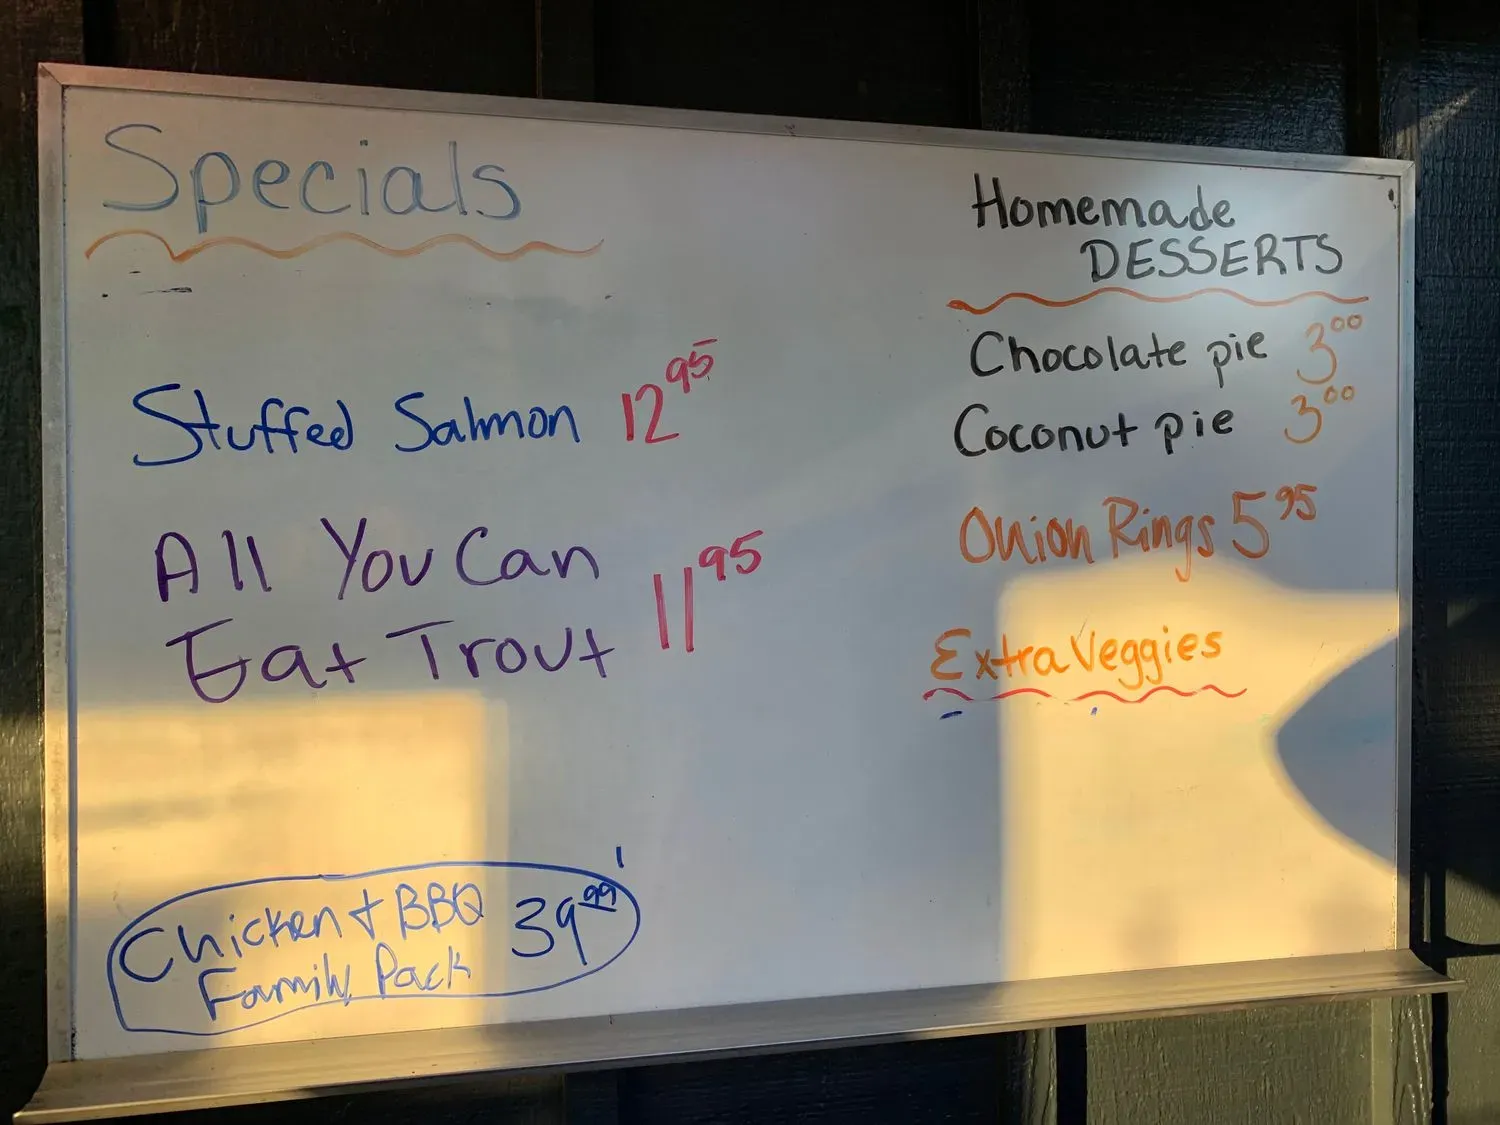 Specials
Stuffed Salmon 12 95
All You Can
Eat Trout 11 95
Chicken + BBQ
Family Pack 39 99
Homemade
DESSERTS
Chocolate pie 3 00
Coconut pie 3 00
Onion Rings 5 95
Extra Veggies